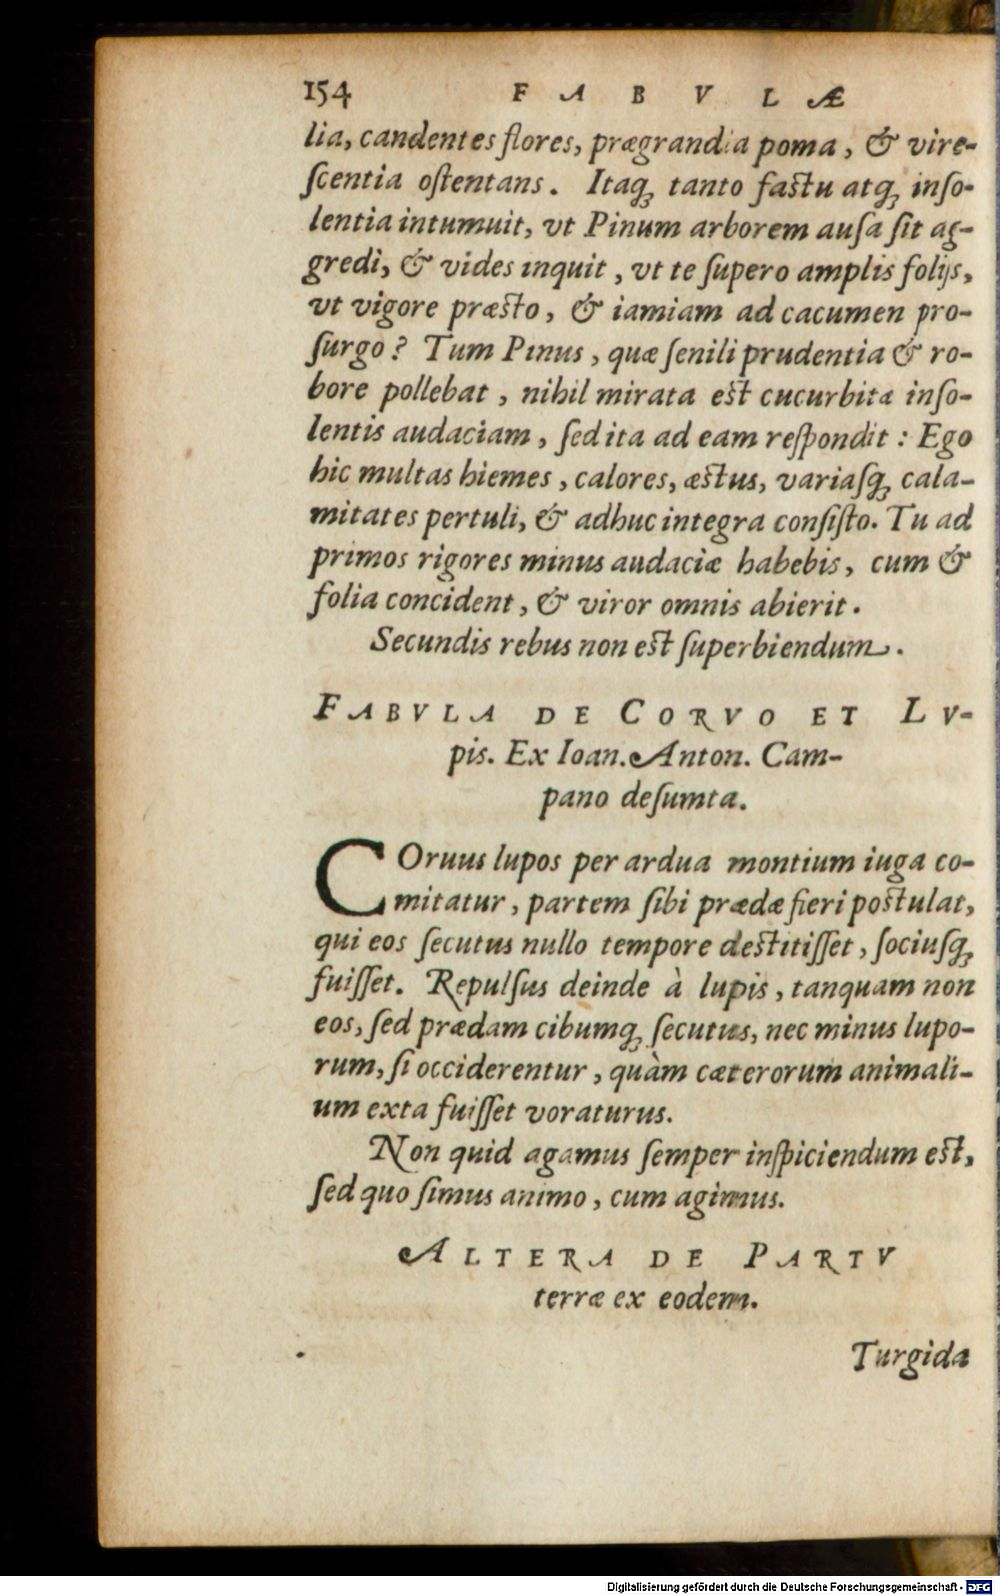 154 FABVLÆ
lia, candentes flores, prægrandia poma, & vire-
ſcentia oſtentans. Itaq; tanto faſtu atq; inſo-
lentia intumuit, vt Pinum arborem auſa ſit ag-
gredi, & vides inquit, vt te ſupero amplis folijs,
vt vigore præſto, & iamiam ad cacumen pro-
ſurgo? Tum Pinus, quæ ſenili prudentia & ro-
bore pollebat, nihil mirata eſt cucurbitæ inſo-
lentis audaciam, ſed ita ad eam reſpondit: Ego
hic multas hiemes, calores, æſtus, variaſq; cala-
mitates pertuli, & adhuc integra conſiſto. Tu ad
primos rigores minus audaciæ habebis, cum &
folia concident, & viror omnis abierit.
Secundis rebus non eſt ſuperbiendum.
FABVLA DE CORVO ET LV-
pis. Ex Ioan. Anton. Cam-
pano deſumta.
COruus lupos per ardua montium iuga co-
mitatur, partem ſibi prædæ fieri poſtulat,
qui eos ſecutus nullo tempore deſtitiſſet, ſociuſq;
fuiſſet. Repulſus deinde à lupis, tanquam non
eos, ſed prædam cibumq; ſecutus, nec minus lupo-
rum, ſi occiderentur, quàm cæterorum animali-
um exta fuiſſet voraturus.
Non quid agamus ſemper inſpiciendum eſt,
ſed quo ſimus animo, cum agimus.
ALTERA DE PARTV
terræ ex eodem.
Turgida
Digitalisierung gefördert durch die Deutsche Forschungsgemeinschaft - DFG